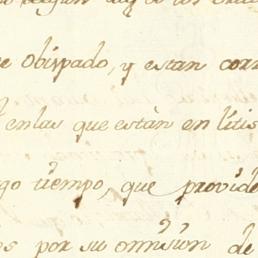 e Obispado, y estan corr
enlas que están en litis
go tiempo, que provide
os por su omision de